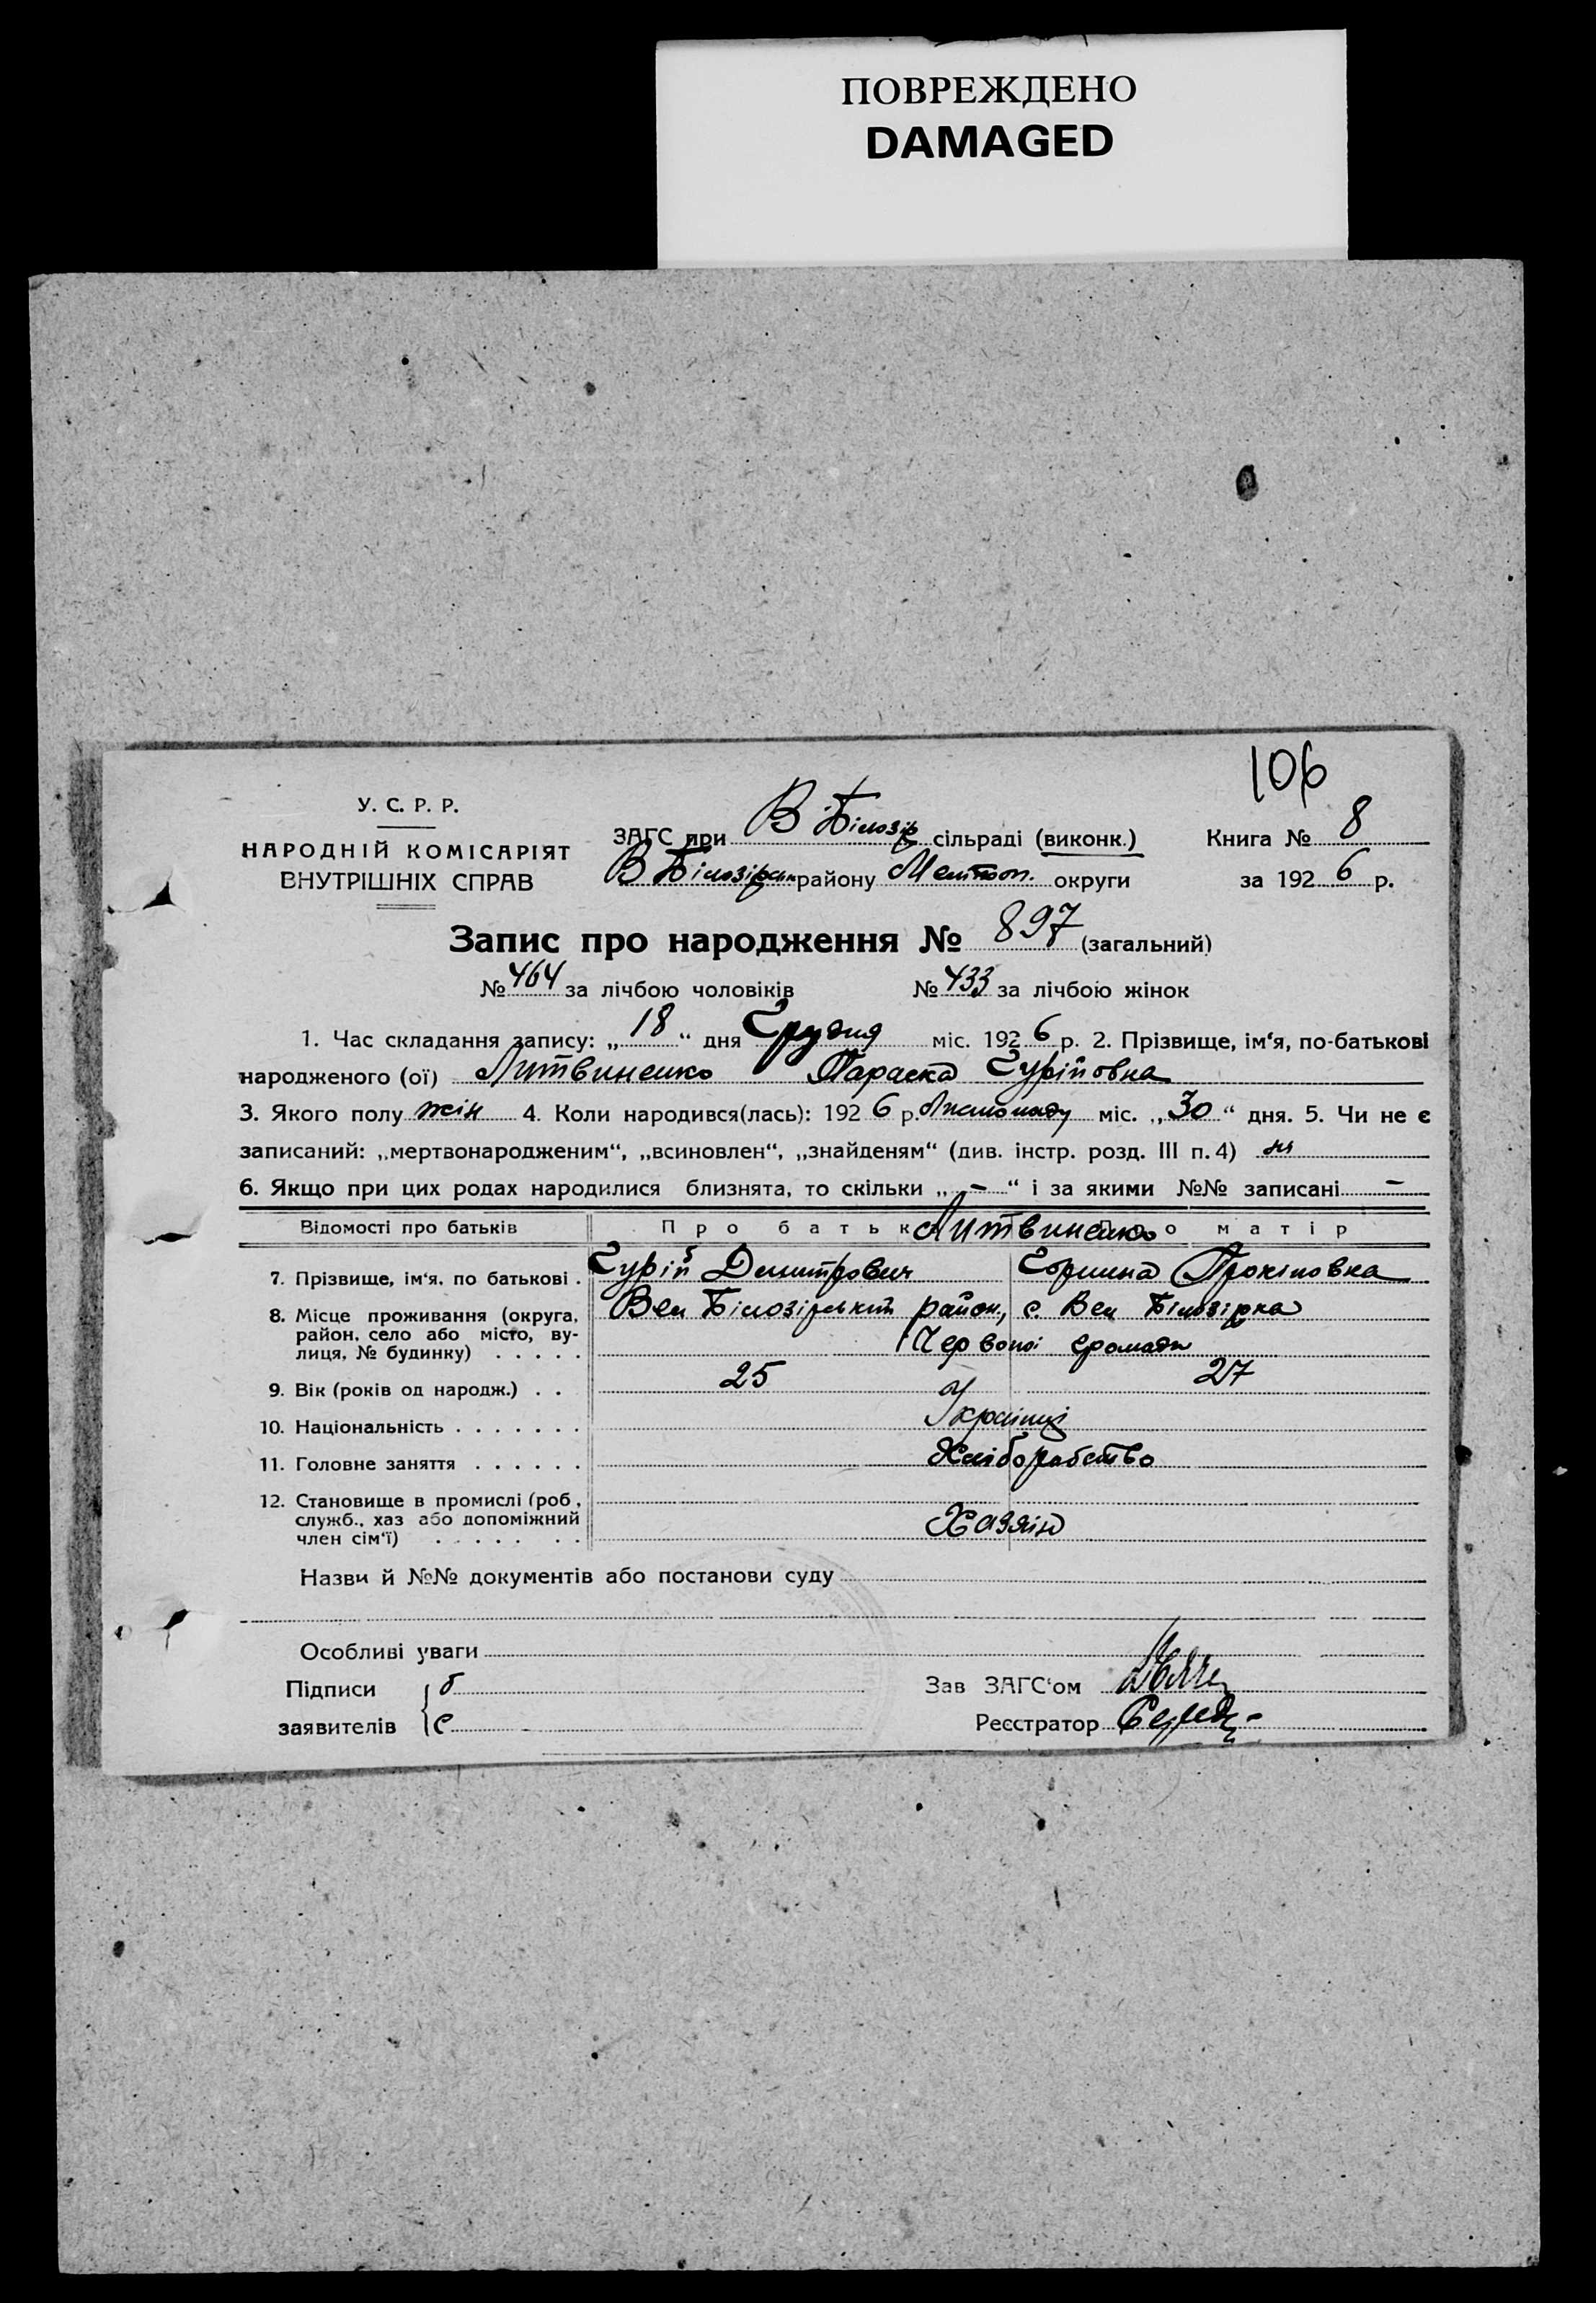 ПОВРЕЖДЕНО
DAMAGED
106
У. С. Р. Р.
НАРОДНІЙ КОМІСАРІЯТ
ВНУТРІШНІХ СПРАВ
ЗАГС при В Білозір сільраді (виконк.)
В Білозірськ району Мелітоп. округи
Книга № 8
за 1926 р.
Запис про народження № 897 (загальний)
№ 464 за лічбою чоловіків № 433 за лічбою жінок
1. Час складання запису: „18“ дня Грудня міс. 1926 р. 2. Прізвище, ім‘я, по-батькові
народженого (ої) Литвиненко Параска Гурійовна
3. Якого полу жін 4. Коли народився(лась): 1926 р. Листопаду міс. „30“ дня. 5. Чи не є
записаний: „мертвонародженим“, „всиновлен“, „знайденям“ (див. інстр. розд. III п. 4) ні
6. Якщо при цих родах народилися близнята, то скільки „-“ і за якими №№ записані -
Відомості про батьків Про батька Про матір
Литвиненко
7. Прізвище, ім‘я, по батькові . Гурій Дмитрович
8. Місце проживання (округа, Вел Білозірський район, с. Вел Білозірка
район, село або місто, ву-
лиця, № будинку) . . . . . Червоної громади
9. Вік (років од народж.) . . 25 27
10. Національність . . . . . . . Українці
11. Головне заняття . . . . . . Хліборобство
12. Становище в промислі (роб.,
служб., хаз або допоміжний Хазяін
член сім‘ї) . . . . . . .
Назви й №№ документів або постанови суду
Особливі уваги
Підписи б
заявителів с
Зав ЗАГС‘ом
Реєстратор